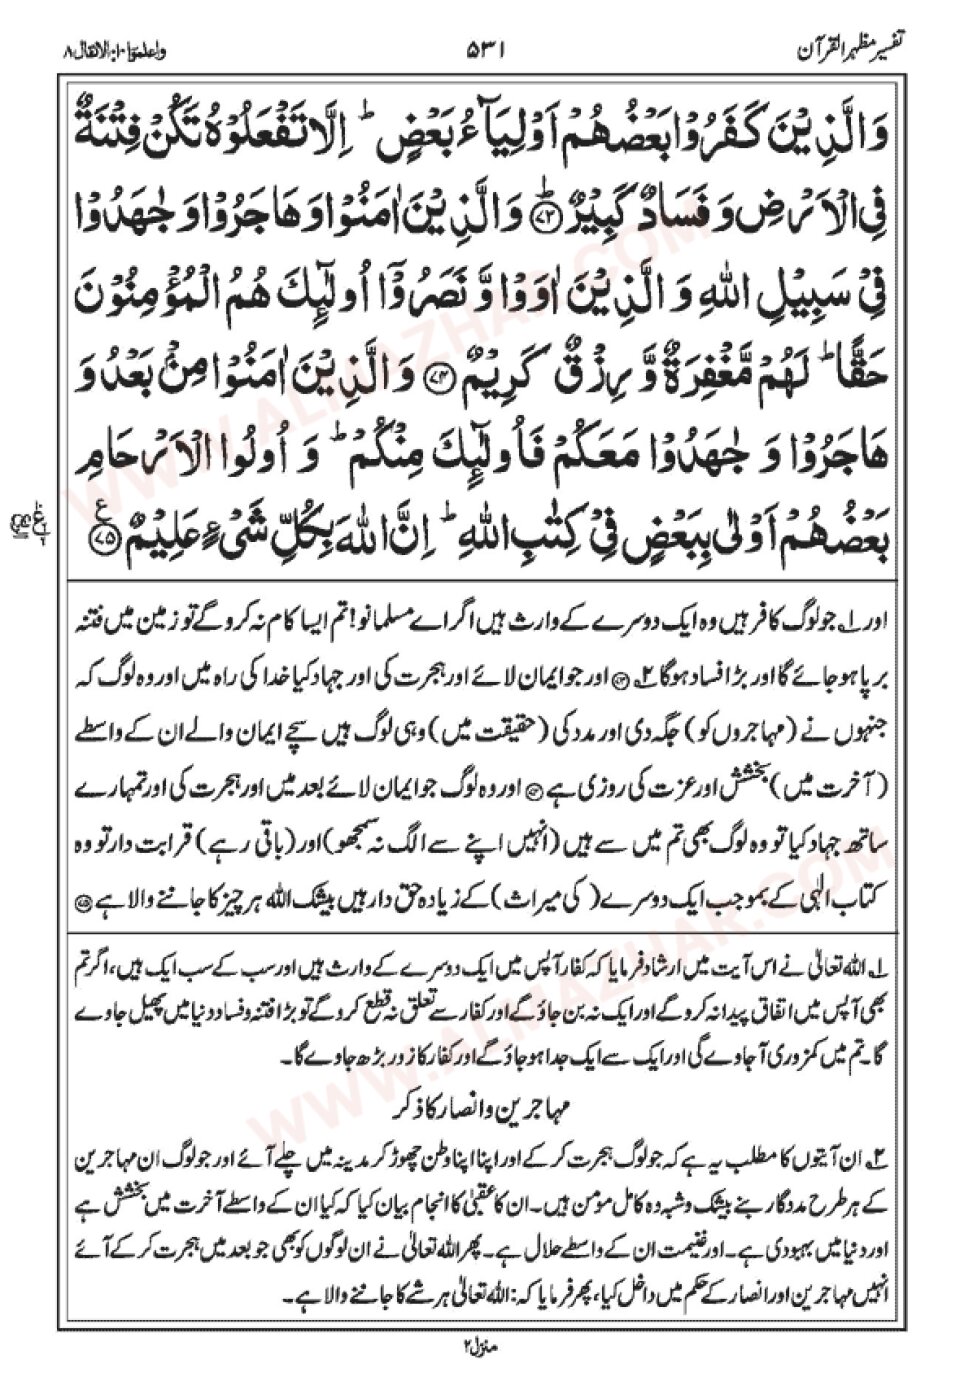 تفسیر مظہر القرآن ۵۳۱ واعلموا ۱۰: الانفال ۸
وَالَّذِیْنَ كَفَرُوْا بَعْضُهُمْ اَوْلِیَآءُ بَعْضٍ ؕ اِلَّا تَفْعَلُوْهُ تَكُنْ فِتْنَةٌ
فِی الْاَرْضِ وَ فَسَادٌ كَبِیْرٌ ؕ﴿۷۳﴾ وَالَّذِیْنَ اٰمَنُوْا وَ هَاجَرُوْا وَ جٰهَدُوْا
فِیْ سَبِیْلِ اللّٰهِ وَ الَّذِیْنَ اٰوَوْا وَّ نَصَرُوْۤا اُولٰٓئِكَ هُمُ الْمُؤْمِنُوْنَ
حَقًّا ؕ لَهُمْ مَّغْفِرَةٌ وَّ رِزْقٌ كَرِیْمٌ ﴿۷۴﴾ وَالَّذِیْنَ اٰمَنُوْا مِنْۢ بَعْدُ وَ
هَاجَرُوْا وَ جٰهَدُوْا مَعَكُمْ فَاُولٰٓئِكَ مِنْكُمْ ؕ وَ اُولُوا الْاَرْحَامِ
بَعْضُهُمْ اَوْلٰی بِبَعْضٍ فِیْ كِتٰبِ اللّٰهِ ؕ اِنَّ اللّٰهَ بِكُلِّ شَیْءٍ عَلِیْمٌ ﴿۷۵﴾ ع
اور ۱؎ جو لوگ کافر ہیں وہ ایک دوسرے کے وارث ہیں اگر اے مسلمانو! تم ایسا کام نہ کرو گے تو زمین میں فتنہ
برپا ہو جائے گا اور بڑا فساد ہوگا ۲؎ ﴿۷۳﴾ اور جو ایمان لائے اور ہجرت کی اور جہاد کیا خدا کی راہ میں اور وہ لوگ کہ
جنہوں نے (مہاجروں کو) جگہ دی اور مدد کی (حقیقت میں) وہی لوگ ہیں سچے ایمان والے ان کے واسطے
(آخرت میں) بخشش اور عزت کی روزی ہے ﴿۷۴﴾ اور وہ لوگ جو ایمان لائے بعد میں اور ہجرت کی اور تمہارے
ساتھ جہاد کیا تو وہ لوگ بھی تم میں سے ہیں (انہیں اپنے سے الگ نہ سمجھو) اور (باقی رہے) قرابت دار تو وہ
کتاب الٰہی کے بموجب ایک دوسرے (کی میراث) کے زیادہ حق دار ہیں بیشک اللہ ہر چیز کا جاننے والا ہے ﴿۷۵﴾
۱؎ اللہ تعالیٰ نے اس آیت میں ارشاد فرمایا کہ کفار آپس میں ایک دوسرے کے وارث ہیں اور سب کے سب ایک ہیں، اگر تم
بھی آپس میں اتفاق پیدا نہ کرو گے اور ایک نہ بن جاؤ گے اور کفار سے تعلق نہ قطع کرو گے تو بڑا فتنہ و فساد دنیا میں پھیل جاوے
گا۔ تم میں کمزوری آ جاوے گی اور ایک سے ایک جدا ہو جاؤ گے اور کفار کا زور بڑھ جاوے گا۔
مہاجرین و انصار کا ذکر
۲؎ ان آیتوں کا مطلب یہ ہے کہ جو لوگ ہجرت کر کے اور اپنا اپنا وطن چھوڑ کر مدینہ میں چلے آئے اور جو لوگ ان مہاجرین
کے ہر طرح مددگار بنے بیشک و شبہ وہ کامل مومن ہیں۔ ان کا عقبیٰ کا انجام بیان کیا کہ کیا ان کے واسطے آخرت میں بخشش ہے
اور دنیا میں بہبودی ہے۔ اور غنیمت ان کے واسطے حلال ہے۔ پھر اللہ تعالیٰ نے ان لوگوں کو بھی جو بعد میں ہجرت کر کے آئے
انہیں مہاجرین اور انصار کے حکم میں داخل کیا، پھر فرمایا کہ: اللہ تعالیٰ ہر شے کا جاننے والا ہے۔
منزل ۲
WWW.ALMAZHAR.COM
WWW.ALMAZHAR.COM